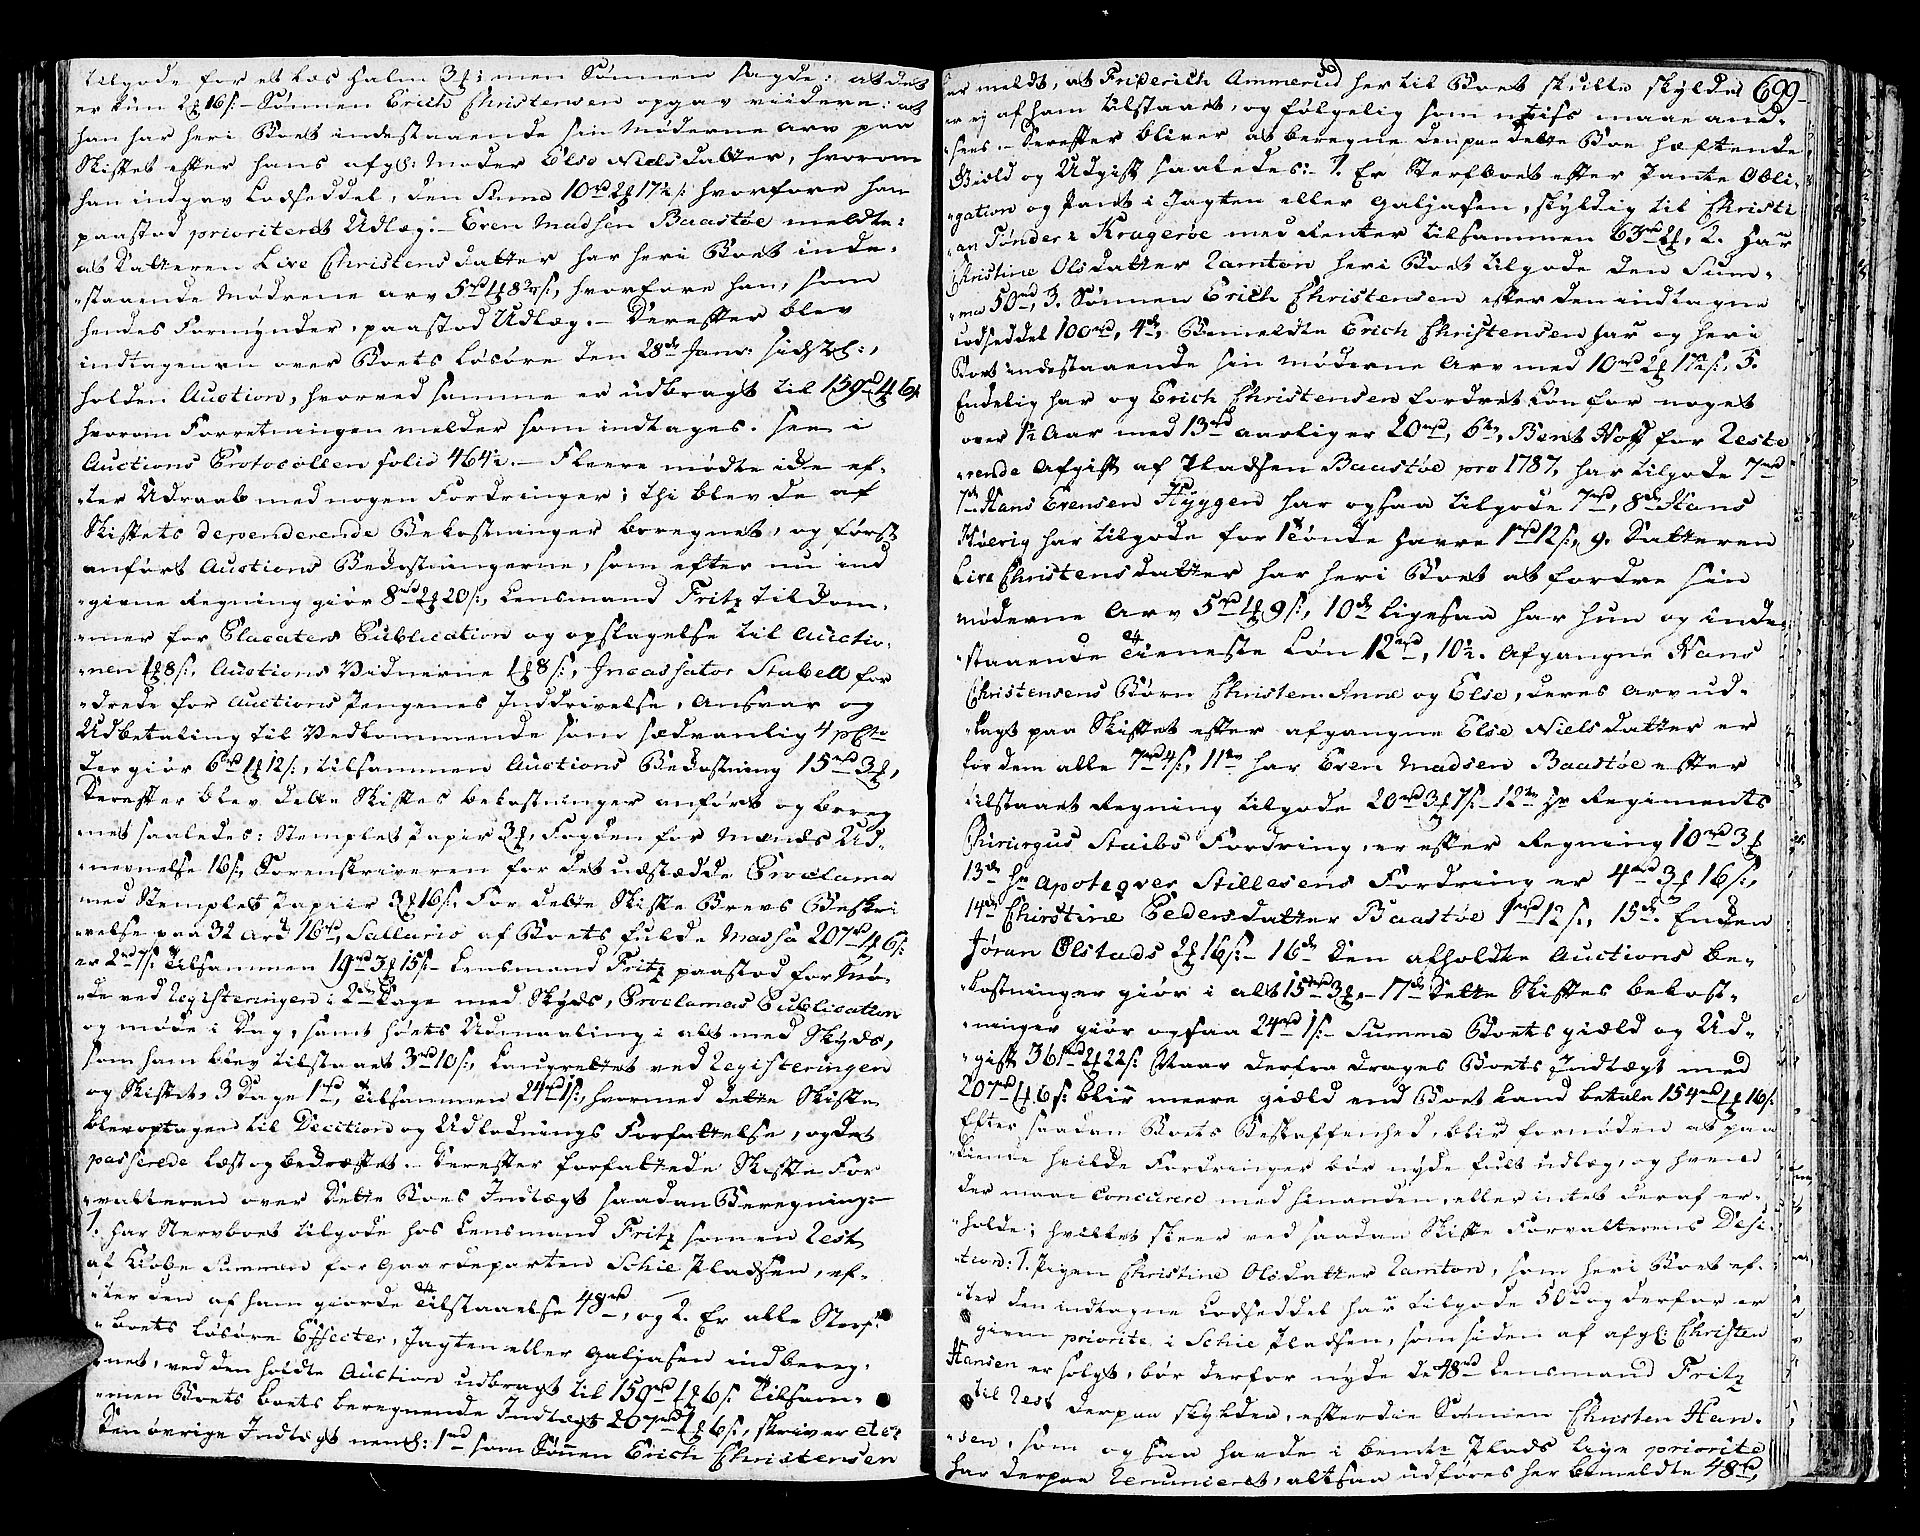 tilgode for et Læs Halm 3 ʒ: men Sønnen sagde: at det
er kun 2 ʒ 16 s: – Sønnen Erich Christensen opgav viidere: at
han har heri Boet indestaaende sin Møderne arv paa
Skiftet efter hans afg: Moder Else Nielsdatter, hvorom
han indgav Lodseddel, den Suma 10 rd 2 ʒ 17½ s: hvorfore han
paastod prioriteret Udlæg. – Even Madsen Baastøe meldte:
at Datteren Live Christensdatter har heri Boet inde-
-staaende Mødrene arv 5 rd 1 ʒ 8 s, hvorfore han, som
hendes Formynder, paastod Udlæg. – Derefter blev
indtagen en over Boets Løsøre den 28de Janr: sidstl:,
holden Auction, hvorved samme er udbragt til 159 rd 1 ʒ 6 s
hvorom Forretningen melder som indtages. see i
Auctions Protocollen folio 464. – Fleere mødte icke ef-
-ter Udraab med nogen Fordringer; thi blev de af
Skiftets dependerende Bekostninger beregnet, og først
anført Auctions Bekostningerne, som efter nu ind
-givne Regning giør 8 rd 2 ʒ 20 s:, Lensmand Fritz tildom-
-mer for Placatens Publication og opslagelse til Auctio-
-nen 1 ʒ 8 s:, Auctions Vidnerne 1 ʒ 8 s:, Incassator Stabell for
-drede for Auctions Pengenes Inddrivelse, Ansvar og
Udbetaling til Vedkommende som sædvanlig 4 pCto
der giør 6 rd 1 ʒ 12 s:, tilsammen Auctions Bekostning 15 rd 3 ʒ,
Derefter blev dette Skiftes bekostninger anført og bereg
net saaledes: Stemplet Papir 3 ʒ, Fogden for Mænds Ud-
-nevnelse 16 s:, Sorenskriveren for det udstædde Proclama
med Stemplet Papiir 3 ʒ 16 s: For dette Skifte Brevs Beskri
-velse paa 32 ark 16 rd, Sallario af Boets fulde Massa 207 rd 1 ʒ 6 s:
er 2 rd 7 s: Tilsammen 19 rd 3 ʒ 15 s: – Lensmand Fritz paastod for Mø-
-de ved Registeringen i 2de Dage med Skyds, Proclamas Publication
og møde i Dag, samt Høets Udmaaling i alt med Skyds,
som ham blev tilstaaet 3 rd 10 s:, Laugrettet ved Registeringen
og Skiftet, 3 Dage 1 rd, Tilsammen 24 rd 1 s:, hvormed dette Skifte
blev optagen til Decition og Udlodnings Forfattelse, og det
passerede læst og bekræftet – Derefter forfattede Skifte For
-valteren over dette Boes Indtægt saadan Beregning: –
1. har Stervboet tilgode hos Lensmand Fritz som en Rest
af Kiøbe Summen for Gaardeparten Schie Pladsen, ef-
-ter den af ham giorde Tilstaaelse 48 rd, og 2. Er alle Sterf-
-boets Løsøre Effecter, Jagten eller Galjasen indbereg-
-net, ved den holdte Auction udbragt til 159 rd 1 ʒ 6 s: Tilsam-
-men Boets beregnende Indtægt 207 rd 1 ʒ 6 s:, skriver etc:
Den øvrige Indtægt neml: 1 rd som Sønnen Erich Christensen
699
er meldt, at Friderich Ammerud her til Boet skulle skylde
er ej af ham tilstaaet, og følgelig som uviss maae and-
-sees. – Derefter bliver at beregne den paa dette Boe hæftende
Giæld og Udgift saaledes: 1. Er Sterfboet efter Pante Obli-
-gation og Pant i Jagten eller Galjasen, skyldig til Christi
-an Tønder i Kragerøe med Renter tilsammen 63 rd 2 ʒ, 2. har
Christine Olsdatter Ramton heri Boet tilgode den Sum-
-ma 50 rd, 3. Sønnen Erich Christensen efter den indtagne
Lodseddel 100 rd, 4de, Bemeldte Erich Christensen har og heri
Boet indestaaende sin Møderne Arv med 10 rd 2 ʒ 17½ s:, 5.
Endelig har og Erich Christensen fordret Løn for noget
over 1½ Aar med 13 rd aarlig er 20 rd, 6te, Bent Hoff for Reste
-rende Afgift af Pladsen Baastøe pro 1787, har tilgode 7 rd
7de Hans Evensen Hyggen har ogsaa tilgode 7 rd, 8de Hans
Høvig har tilgode for 1 Tønde Havre 1 rd 12 s:, 9. Datteren
Live Christensdatter har heri Boet at fordre sin
møderne Arv 5 rd 1 ʒ 9 s:, 10de ligesaa har hun og inde-
-staaende Tieneste Løn 12 rd, 10½. Afgangne Hans
Christensens Børn Christen, Anne og Else, deres Arv ud-
-lagt paa Skiftet efter afgangne Else Nielsdatter er
for dem alle 7 rd 4 s:, 11te har Even Madsen Baastøe efter
tilstaaet Regning tilgode 20 rd 3 ʒ 7 s: – 12te Hr Regiments
Chirurgus Staibs Fordring, er efter Regning 10 rd 3 ʒ
13de Hr Apoteqver Stillesens Fordring er 4 rd 3 ʒ 16 s:,
14de Christine Pedersdatter Baastøe 1 rd 12 s:, 15de. Enken
Jøran Olstads 2 ʒ 16 s: – 16de Den afholdte Auctions be-
-kostninger giør i alt 15 rd 3 ʒ, – 17de Dette Skiftes bekost-
-ninger giør ogsaa 24 rd 1 s: – Summa Boets giæld og Ud-
-gift 361 rd 2 ʒ 22 s: Naar derfra drages Boets Indtægt med
207 rd 1 ʒ 6 s: bliv meere giæld end Boet kand betale 154 rd 1 ʒ 16 s:
Efter saadan Boets Beskaffenhed, bliv fornøden at paa
-kiende hvilke Fordringer bør nyde fult udlæg, og hvem
der maae concurere med hinanden, eller intet deraf er-
-holde; hvilket skeer ved saadan Skifte Forvalterens Desi-
-tion: 1. Pigen Christine Olsdatter Ramton, som heri Boet ef-
-ter den indtagne Lodseddel har tilgode 50 rd og derfor er
given priorite i Schie Pladsen, som siden af afg: Christen
Hansen er solgt, bør derfor nyde de 48 rd Lensmand Fritz
til Rest derpaa skylder, efterdie Sønnen Christen Han-
-sen, som ogsaa havde i bemte Plads lige priorite
har derpaa renunceret, altsaa udføres her bemeldte 48 rd,